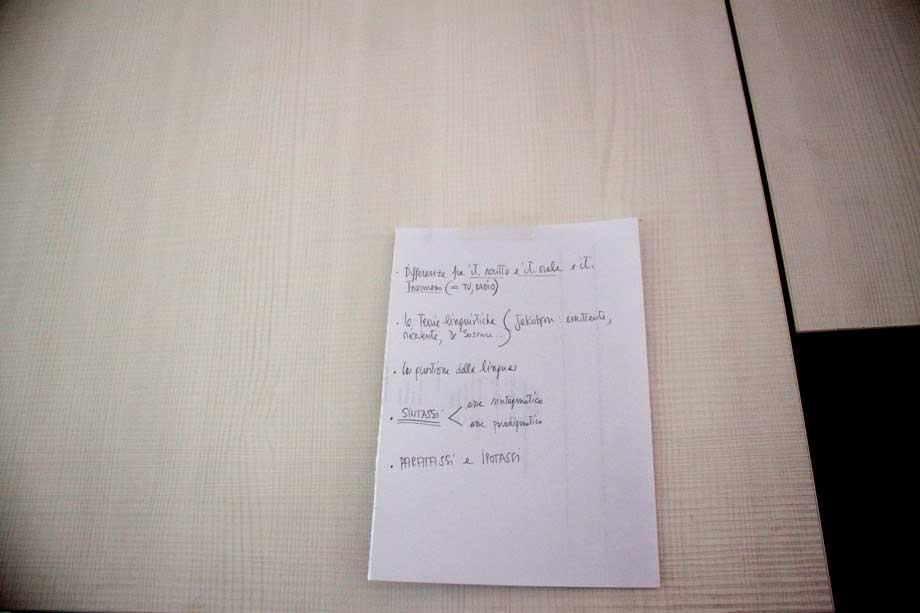 · Differenze fra it. scritto e it. orale e it.
trasmesso (= TV, RADIO)
· Le Teorie linguistiche ( Jakobson : emittente,
ricevente, De Sossure...
· La questione della lingua
· SINTASSI < asse sintagmatico
asse paradigmatico
· PARATASSI e IPOTASSI